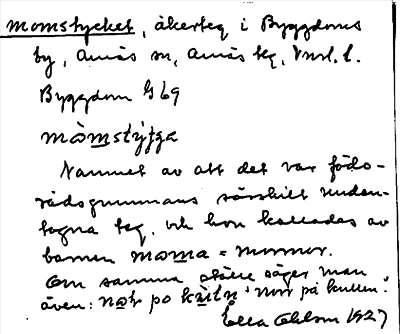 Momstycket, åkerteg i Byggdoms
by, Amnäs sn, Amnäs tg, Vnrl. l.
Byggdom G 69
mòmstýʃʒa
Namnet av att det var föds-
rådsgummans särskilt undan-
tagna teg, och hon kallades av
barnen moma = mormor.
Om samma ställe säger man
även: nǫr po kul̥n 'norr på kullen'.
Ella Ohlson 1927